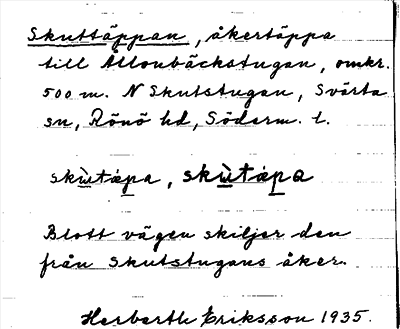 Skuttäppan, åkertäppa
till Ållonbäckstugan, omkr.
500 m. N Skutstugan, Svärta
sn, Rönö hd, Söderm. l.
skùtäpa, skùtäpa
Blott vägen skiljer den
från Skutstugans åker.
Herberth Eriksson 1935.